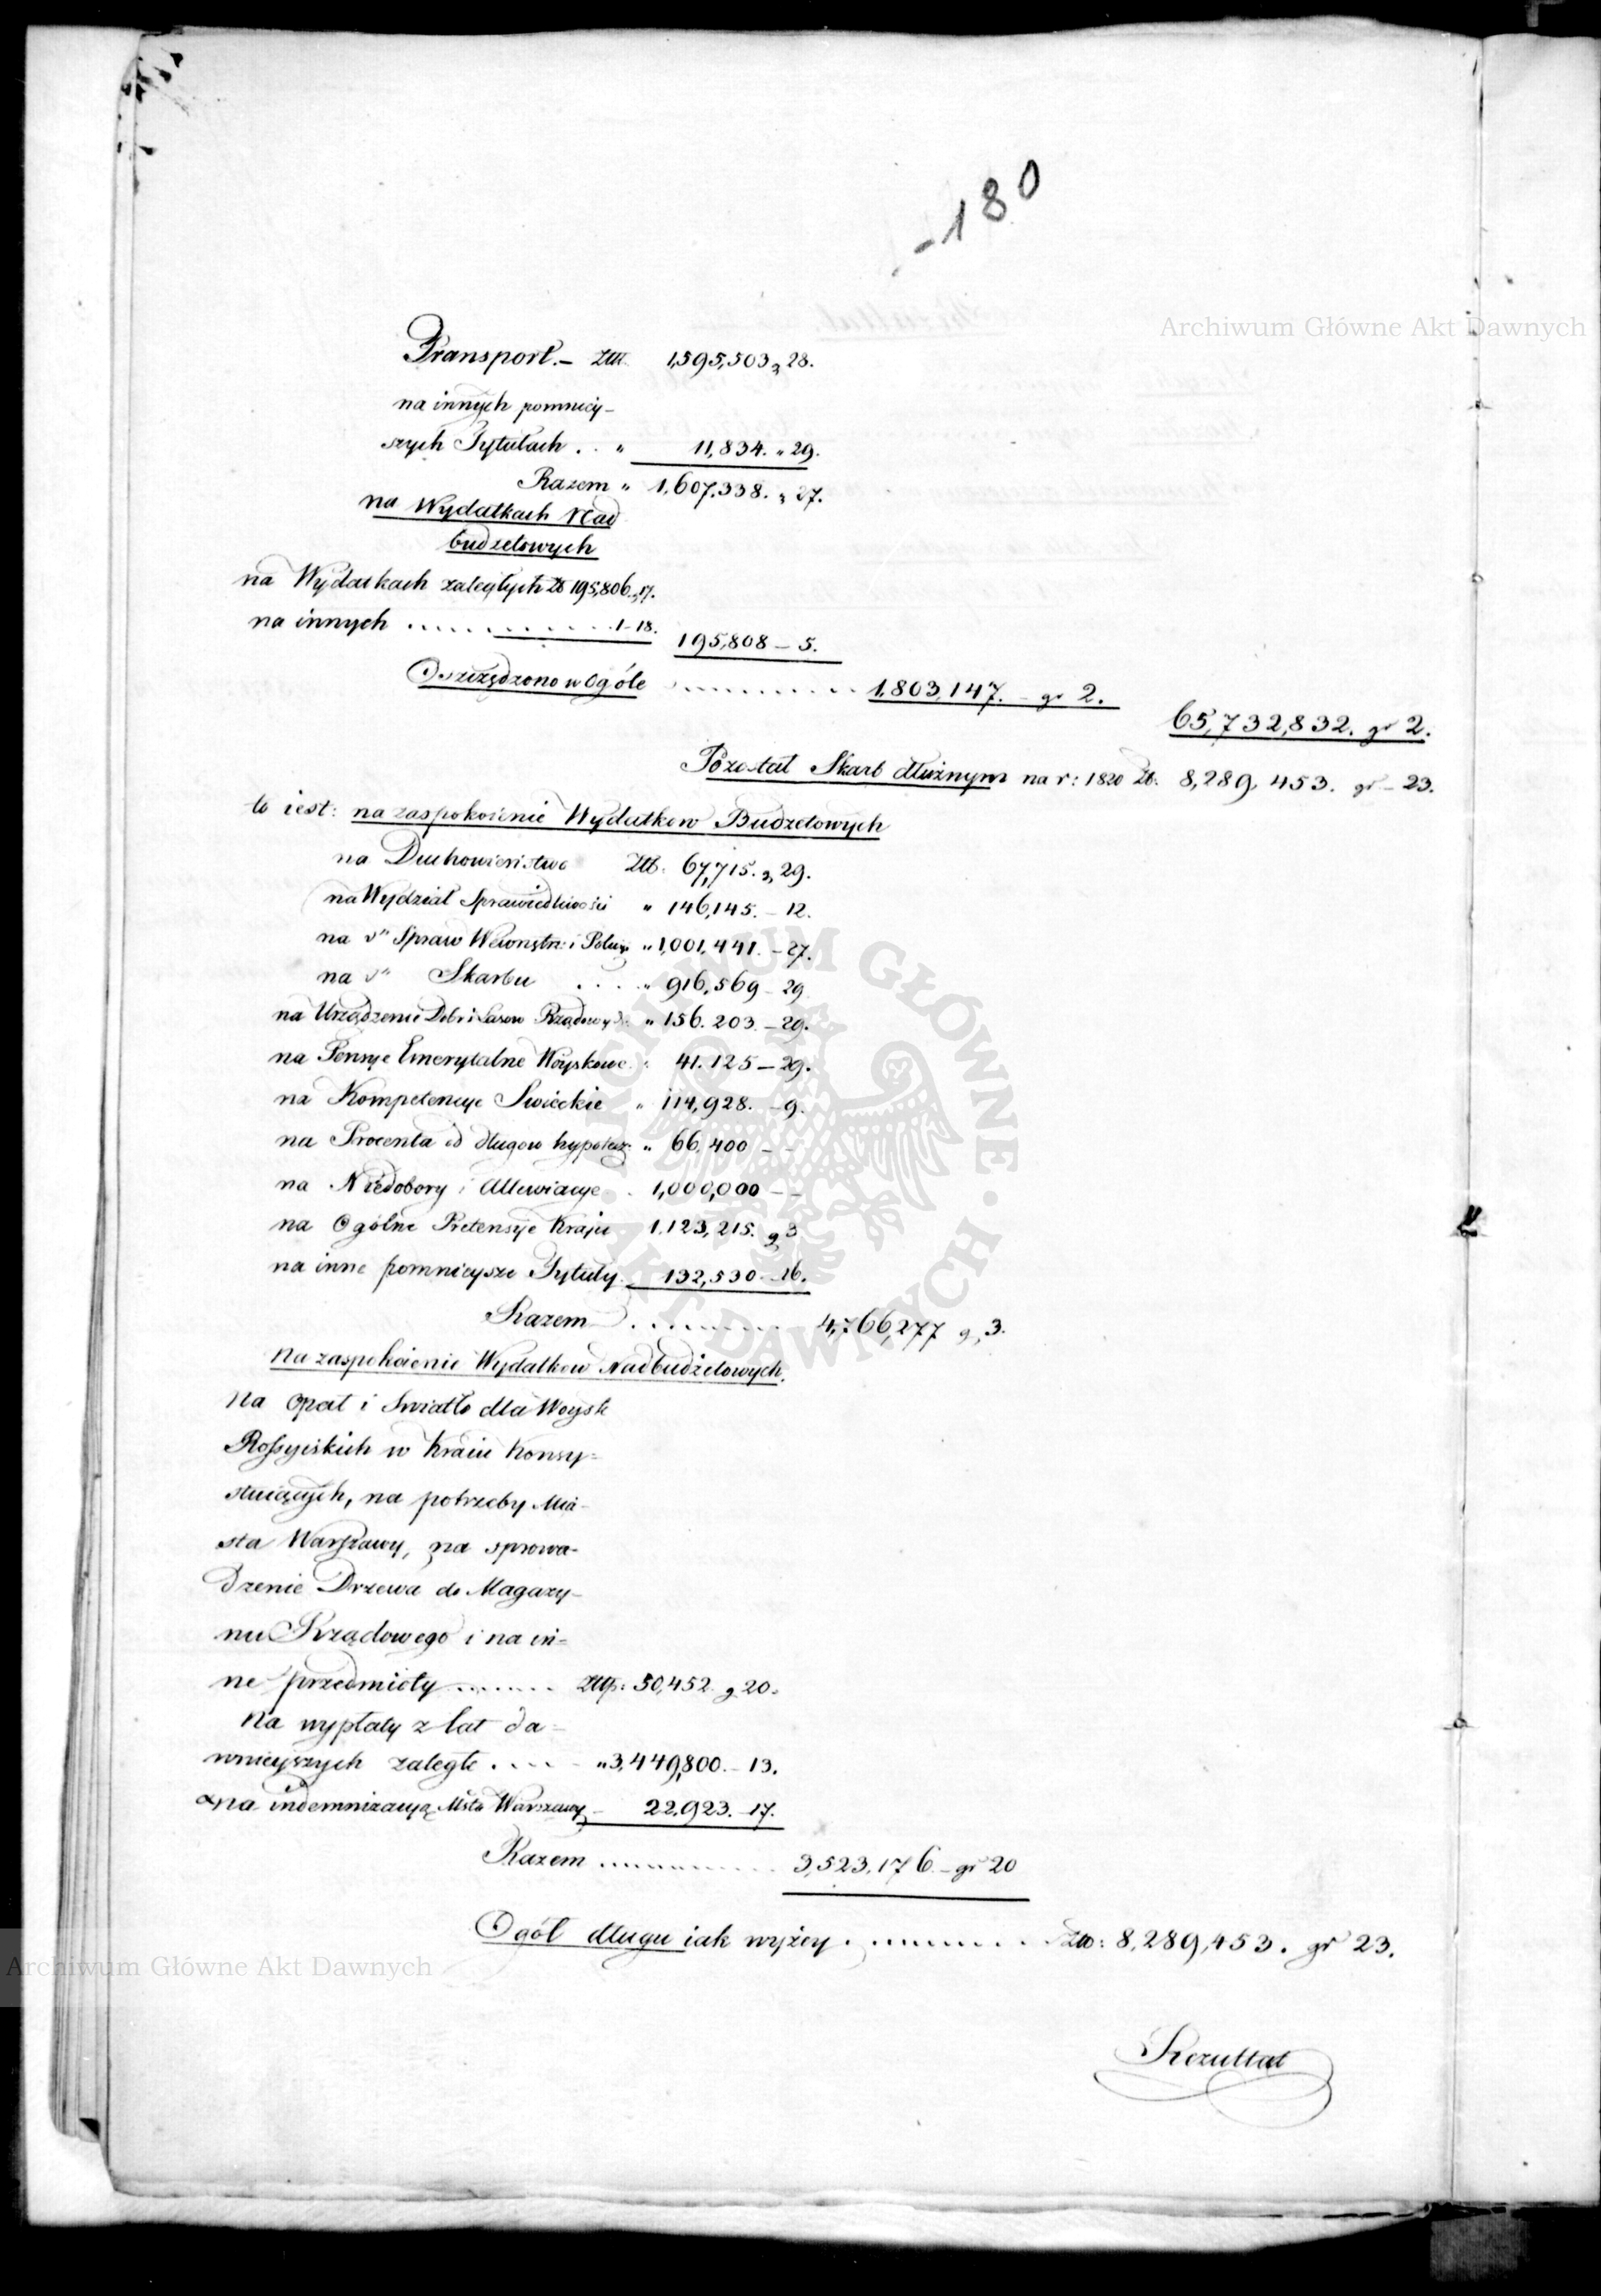 -180
Archiwum Główne Akt Dawnych
Transport. – Złł. 1,595,503 „ 28.
na innych pomniey-
szych Tytułach . . „ 11,834. „ 29.
Razem „ 1,607,338. „ 27.
na Wydatkach Nad
budżetowych
na Wydatkach zaległych Zł 195,806 „ 17.
na innych . . . . . . . . . . 1 – 18.
195,808 – 5.
Oszczędzono w Ogóle . . . . . . . . . . 1,803,147. – gr 2.
65,732,832. gr 2.
Pozostał Skarb dłużnym na r: 1820 Zł. 8,289,453. gr – 23.
to iest: na zaspokoienie Wydatkow Budżetowych
na Duchowieństwo Złł. 67,715. „ 29.
na Wydział Sprawiedliwości „ 146,145. – 12.
na d° Spraw Wewnętrz: i Policyi „ 1,001,441. – 27.
na d° Skarbu . . . . „ 916,569 – 29
na Urządzenie Dobr i Lasow Rządowych „ 156.203 – 29.
na Pensye Emerytalne Woyskowe. „ 41.125 – 29.
na Kompetencye Swieckie „ 114,928. – 9.
na Procenta od długow hypotecz: „ 66,400 – –
na Niedobory i Allewiacye . 1,000,000 – –
na Ogólne Pretensye Kraju 1,123,215. g 3
na inne pomnieysze Tytuły. 132,530 – 16.
Razem . . . . . . . . . 4,766,277 g. 3.
Na zaspokoienie Wydatkow Nadbudżetowych.
Na Opał i Swiatło dla Woysk
Rossyiskich w Kraiu Konsy-
stuiących, na potrzeby Mia-
sta Warszawy, na sprowa-
dzenie Drzewa do Magazy-
nu Rządowego i na in-
ne przedmioty . . . . . . . Złłp: 50,452. g 20.
Na wypłaty z lat da-
wnieyszych zaległe . . . . – „ 3,449,800. – 13.
na indemnizacyą Msta Warszawy – 22,923. – 17.
Razem . . . . . . . . . . 3,523,176 – gr 20
Ogół długu iak wyżey . . . . . . . . . Złł: 8,289,453. gr 23.
Archiwum Główne Akt Dawnych
Rezultat
ARCHIWUM GŁÓWNE · AKT DAWNYCH ·